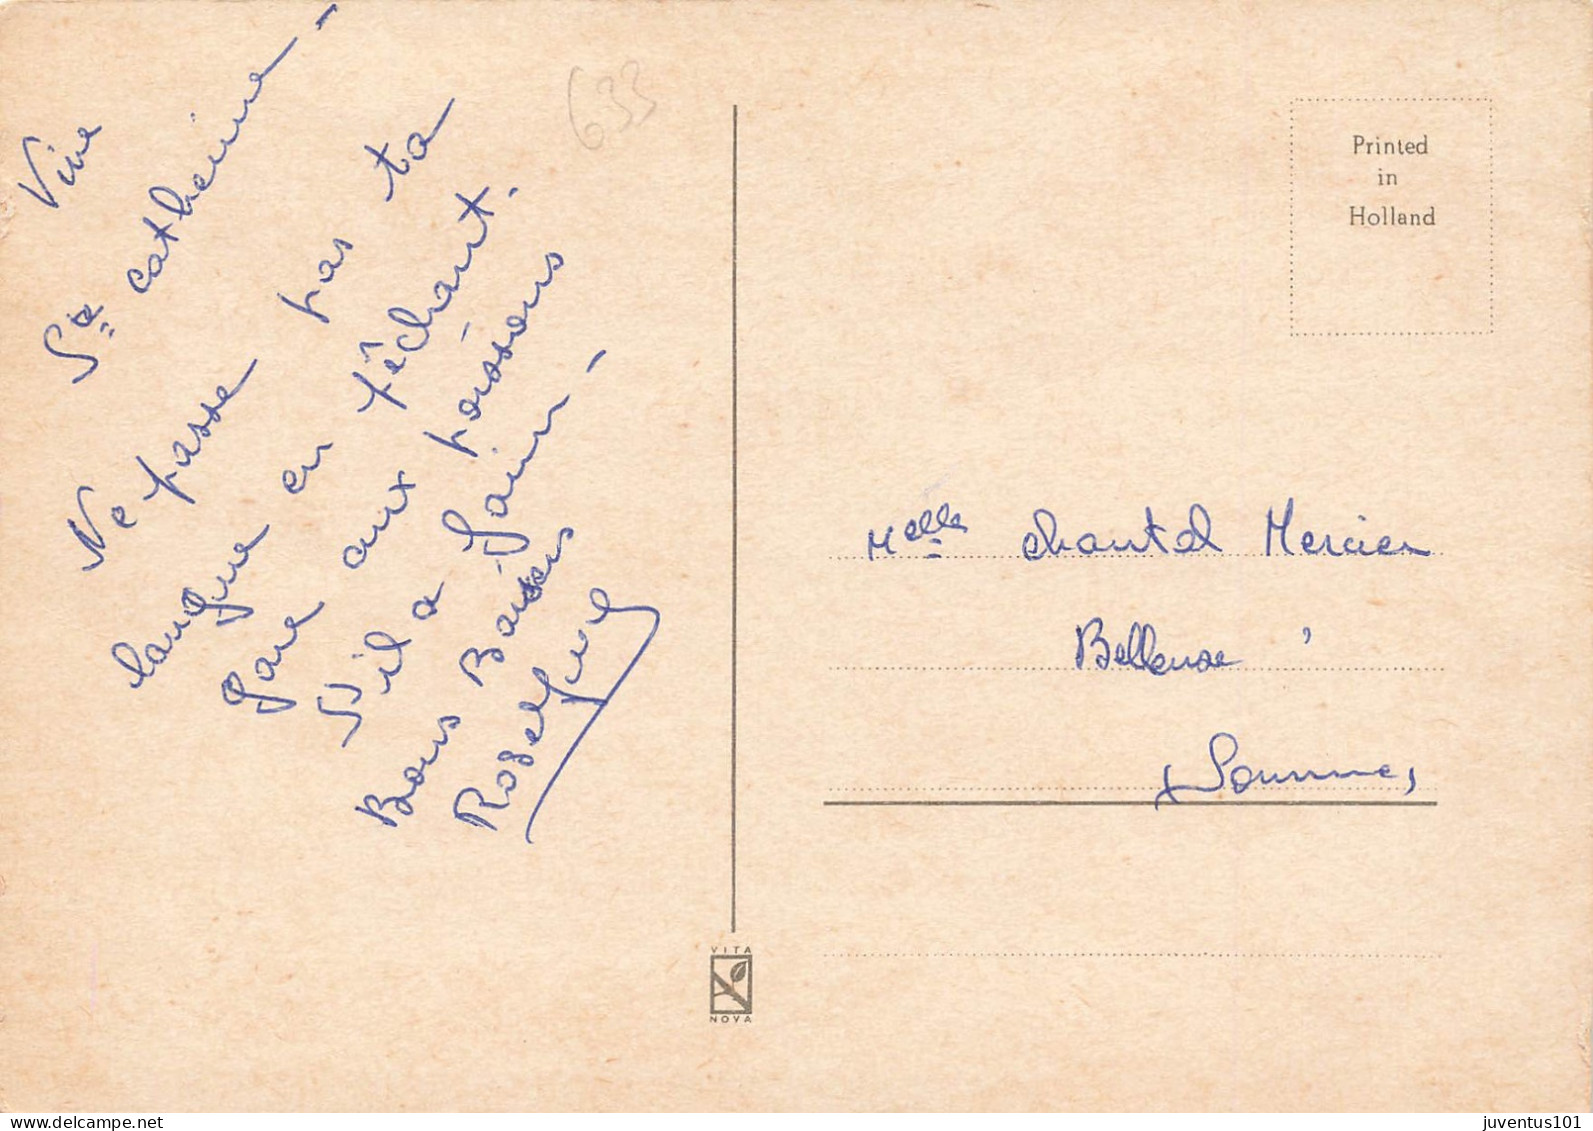 Vive
Ste catherine -
Ne passe pas ta
langue en pêchant. -
Gare aux poissons
S'il a faim -
Bons Baisers
633
Printed
in
Holland
Melle Chantal Mercier
Belleuse
Somme,
VITA
NOVA
delcampe.net
juventus101